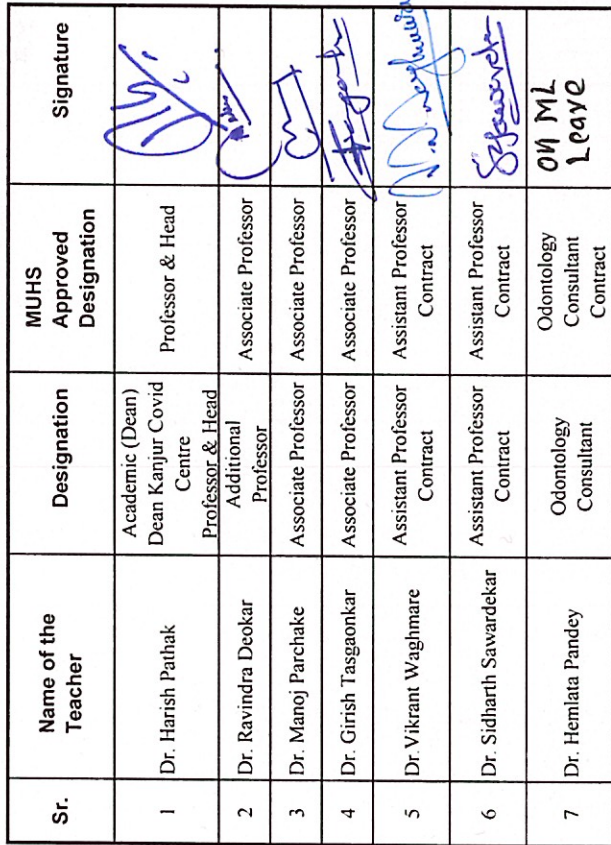 Sr.
Name of the
Teacher
Designation
MUHS
Approved
Designation
Signature
1
Dr. Harish Pathak
Academic (Dean)
Dean Kanjur Covid
Centre
Professor & Head
Professor & Head
2
Dr. Ravindra Deokar
Additional
Professor
Associate Professor
3
Dr. Manoj Parchake
Associate Professor
Associate Professor
4
Dr. Girish Tasgaonkar
Associate Professor
Associate Professor
5
Dr.Vikrant Waghmare
Assistant Professor
Contract
Assistant Professor
Contract
6
Dr. Sidharth Sawardekar
Assistant Professor
Contract
Assistant Professor
Contract
7
Dr. Hemlata Pandey
Odontology
Consultant
Odontology
Consultant
Contract
on ML
Leave